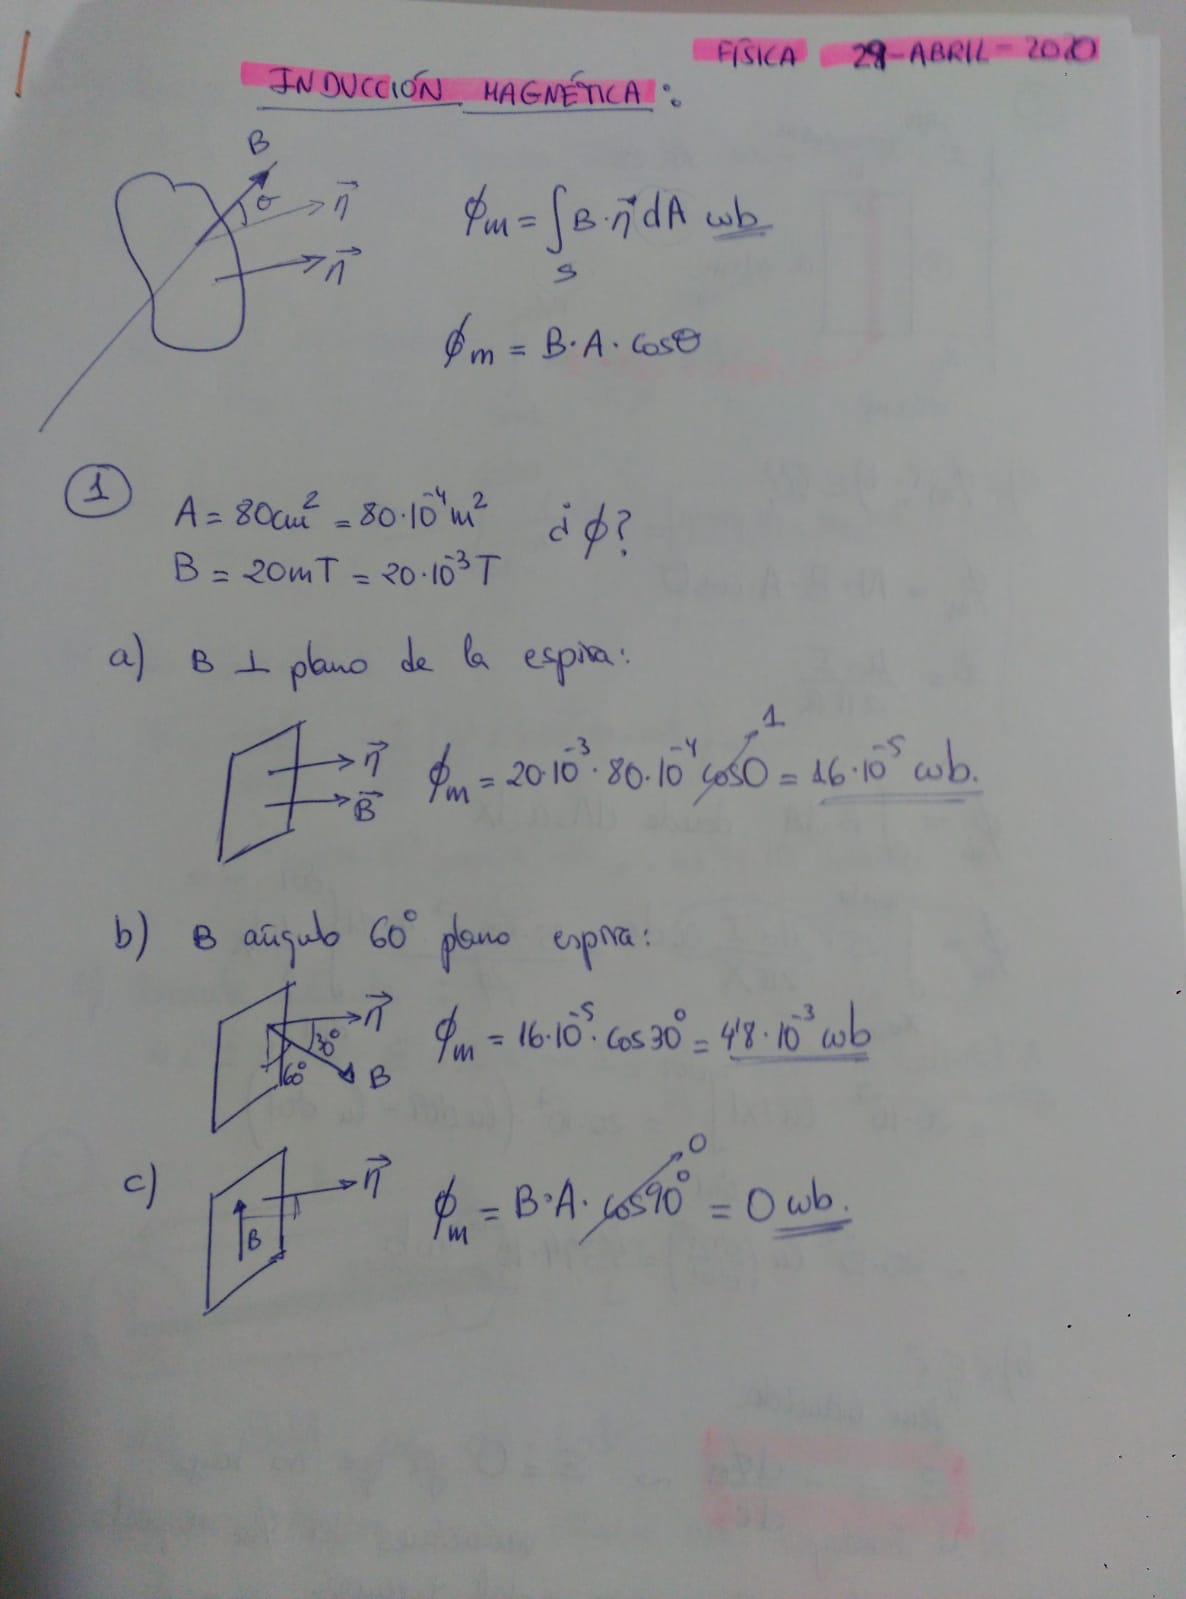 FÍSICA 28-ABRIL-2020
INDUCCIÓN MAGNÉTICA:
B
θ
n⃗
n⃗
ϕm = ∫s B·n⃗ dA wb
ϕm = B·A·cosθ
1
A = 80cm² = 80·10⁻⁴m² ¿ϕ?
B = 20mT = 20·10⁻³T
a) B ⊥ plano de la espira:
n⃗
B⃗
ϕm = 20·10⁻³·80·10⁻⁴ cos0 = 16·10⁻⁵ wb.
1
b) B ángulo 60° plano espira:
n⃗
30°
60°
B
ϕm = 16·10⁻⁵·cos30° = 4'8·10⁻³ wb
c)
n⃗
B
ϕm = B·A·cos90° = 0 wb.
0